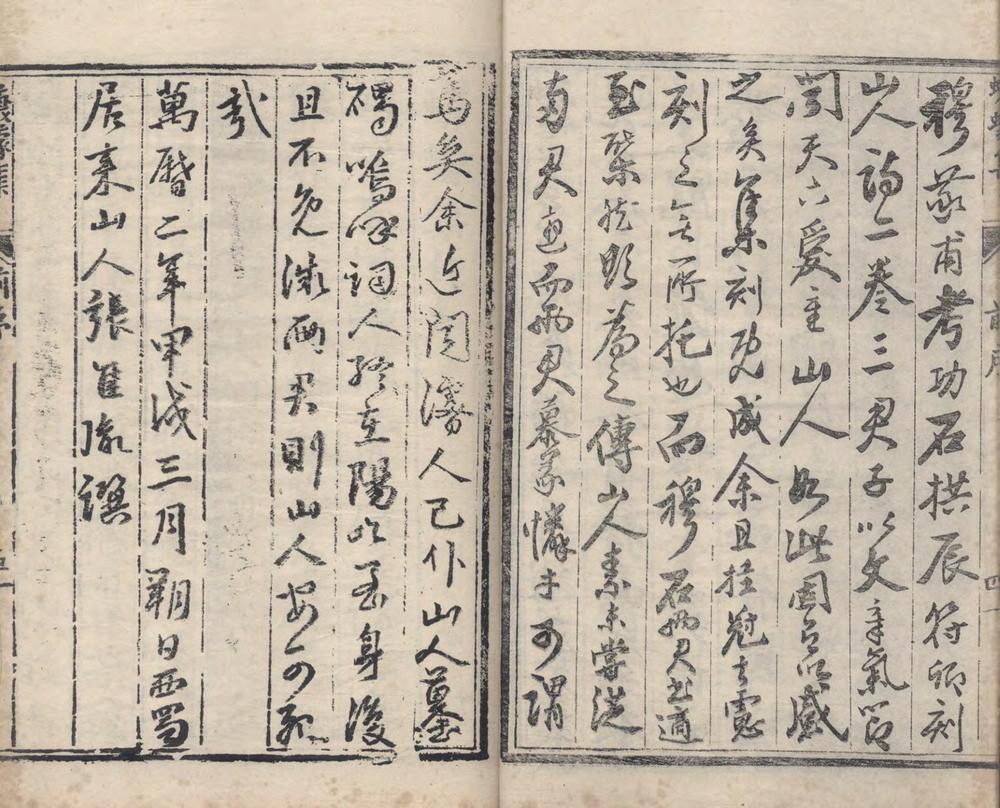 蠛蠓集 前序 四
穆敬甫考功石拱辰符卿刻
山人詩二卷三君子以文章氣節
聞天下愛重山人如此固有以感
之矣集刻既成余且挂冠去慮
刻之無所托也而穆石兩君書適
至然願為之傳山人素未嘗從
兩君遊而兩君慕義憐才可謂
篤矣余近聞濬人已作山人墓
碣嗚呼詞人在陽身後
且不免微兩君則山人安可死
哉
萬曆二年甲戌三月朔日西蜀
居來山人張佳胤譔
蠛蠓集 前序 五